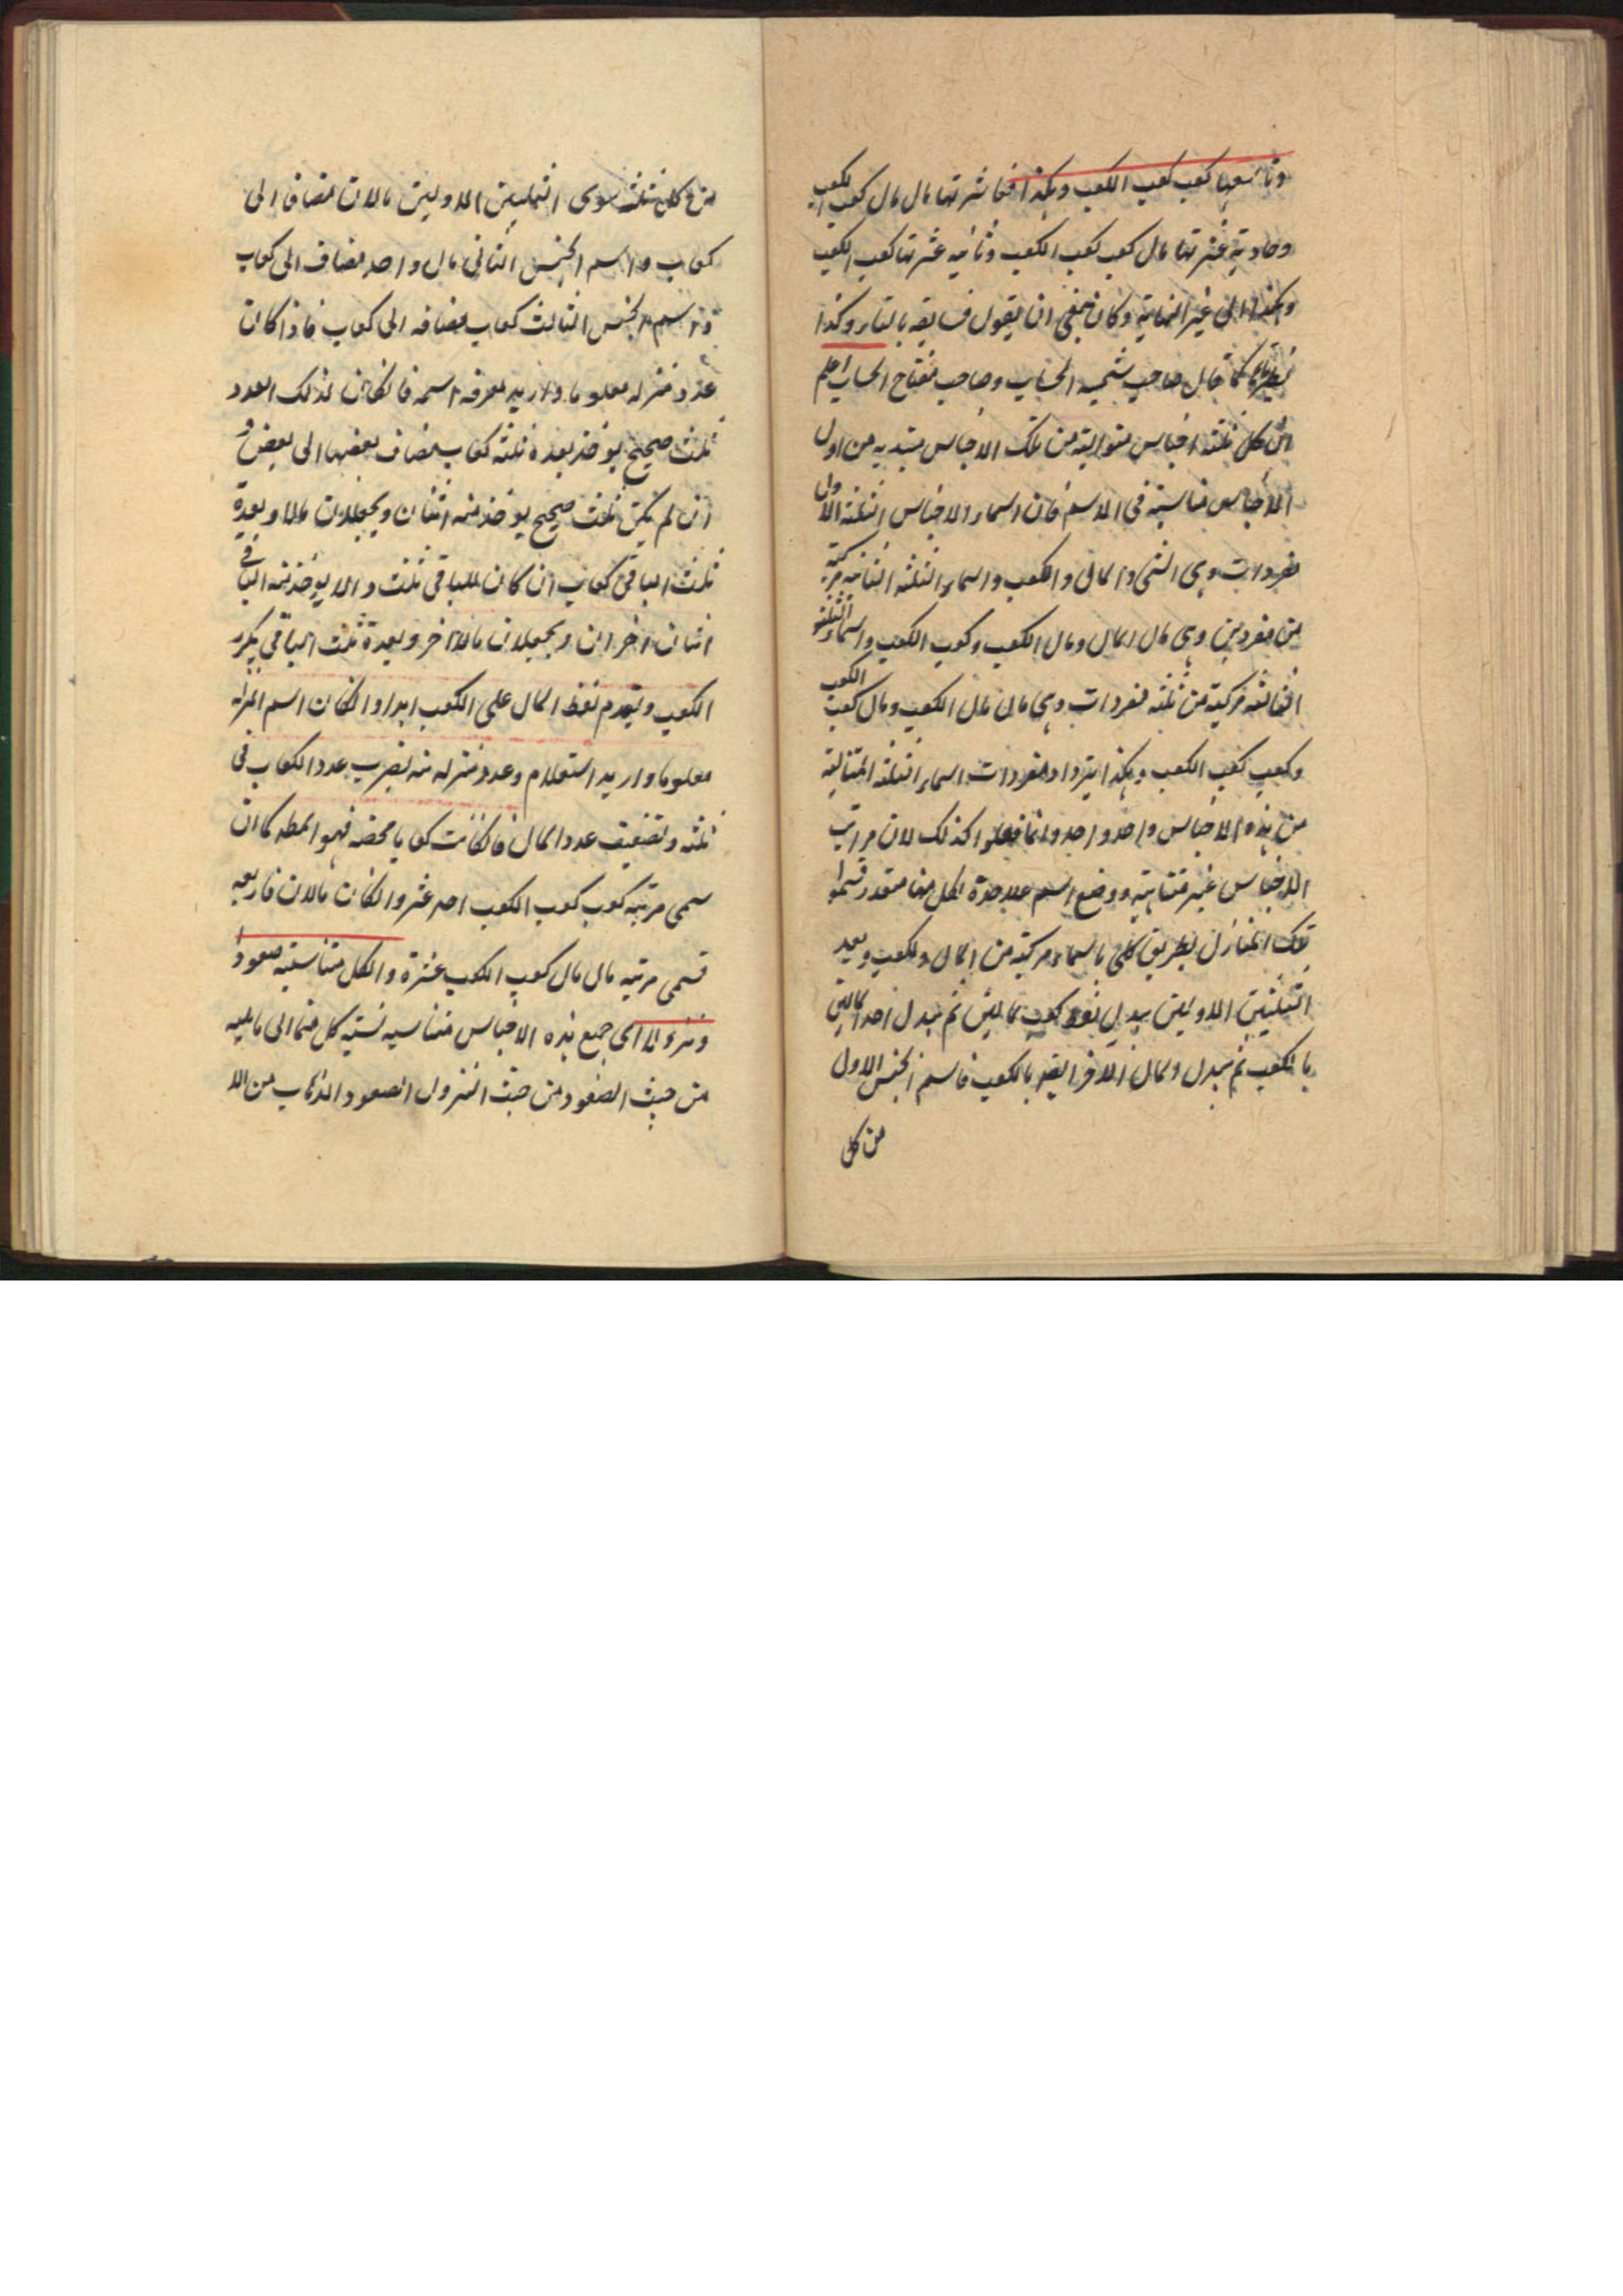 وتاسعها كعب كعب الكعب وهكذا فعاشرتها مال مال كعب الكعب
وحادية عشرتها مال كعب كعب الكعب وثانية عشرتها كعب الكعب
وهكذا الى غير النهاية وكان ينبغي ان يقول فسابعه بالتاء وكذا
كما قال صاحب شمسية الحساب وصاحب مفتاح الحساب اعلم
ان كل ثلثة اجناس متوالية من تلك الاجناس مبتدية من اول
الاجناس متناسبة في الاسم فان اسماء الاجناس الثلثة الاول
مفردات وهي الشئ والمال والكعب واسماء الثلثة الثانية مركبة
من مفردين وهي مال المال ومال الكعب وكعب الكعب واسماء الثلثة
الثالثة مركبة من ثلثة مفردات وهي مال مال الكعب ومال كعب الكعب
وكعب كعب الكعب وهكذا يتزداد مفردات اسماء الثلثة المتتالية
من هذه الاجناس واحد واحد وانما فعلوا كذلك لان مراتب
الاجناس غير متناهية ووضع اسم علاحدة لكل منها متعذر فسموا
تلك المنازل بطريق كلي باسماء مركبة من المال والكعب وبعد
الثلثين الاولين يبدل كعب بمالين ثم يبدل احد المالين
بالكعب ثم يبدل ومال الاخر ايضا بالكعب فاسم الجنس الاول
من كل
من كل مثلث سوى الاولين مالان مضاف الى
كعاب واسم الجنس الثاني مال واحد مضاف الى كعاب
واسم الجنس الثالث كعاب مضافه الى كعاب فاذا كان
عدد منزله معلوما واريد معرفه اسمه فان كان لذلك العدد
ثلث صحيح يوخذ بعده ثلثه كعاب يضاف بعضها الى بعض و
ان لم يكن ثلث صحيح يوخذ منه اثنان ويجعلان مالا وبعدة
ثلث الباقي كعاب ان كان للباقي ثلث والا يوخذ منه الباقي
اثنان اخران ويجعلان مالا اخر وبعدة ثلث الباقي يكرر
الكعب ويقدم لفظ المال على الكعب ابدا وان كان اسم المنزله
معلوما واريد استعلام وعدد منزله منه يضرب عدد الكعاب في
ثلثه وتضعيف عدد المال فان كانت كعابا محضه فهو المط كما ان
سمى مرتبه كعب كعب الكعب احد عشر وان كان مالان فاربعه
قسمى مرتبه مال مال كعب الكعب عشرة والكل متناسبة صعودا
ونزولا اى جميع هذه الاجناس متناسبه نسبة كل منها الى ما يليه
من حيث الصعود من حيث النزول الصعود الذهاب من الا